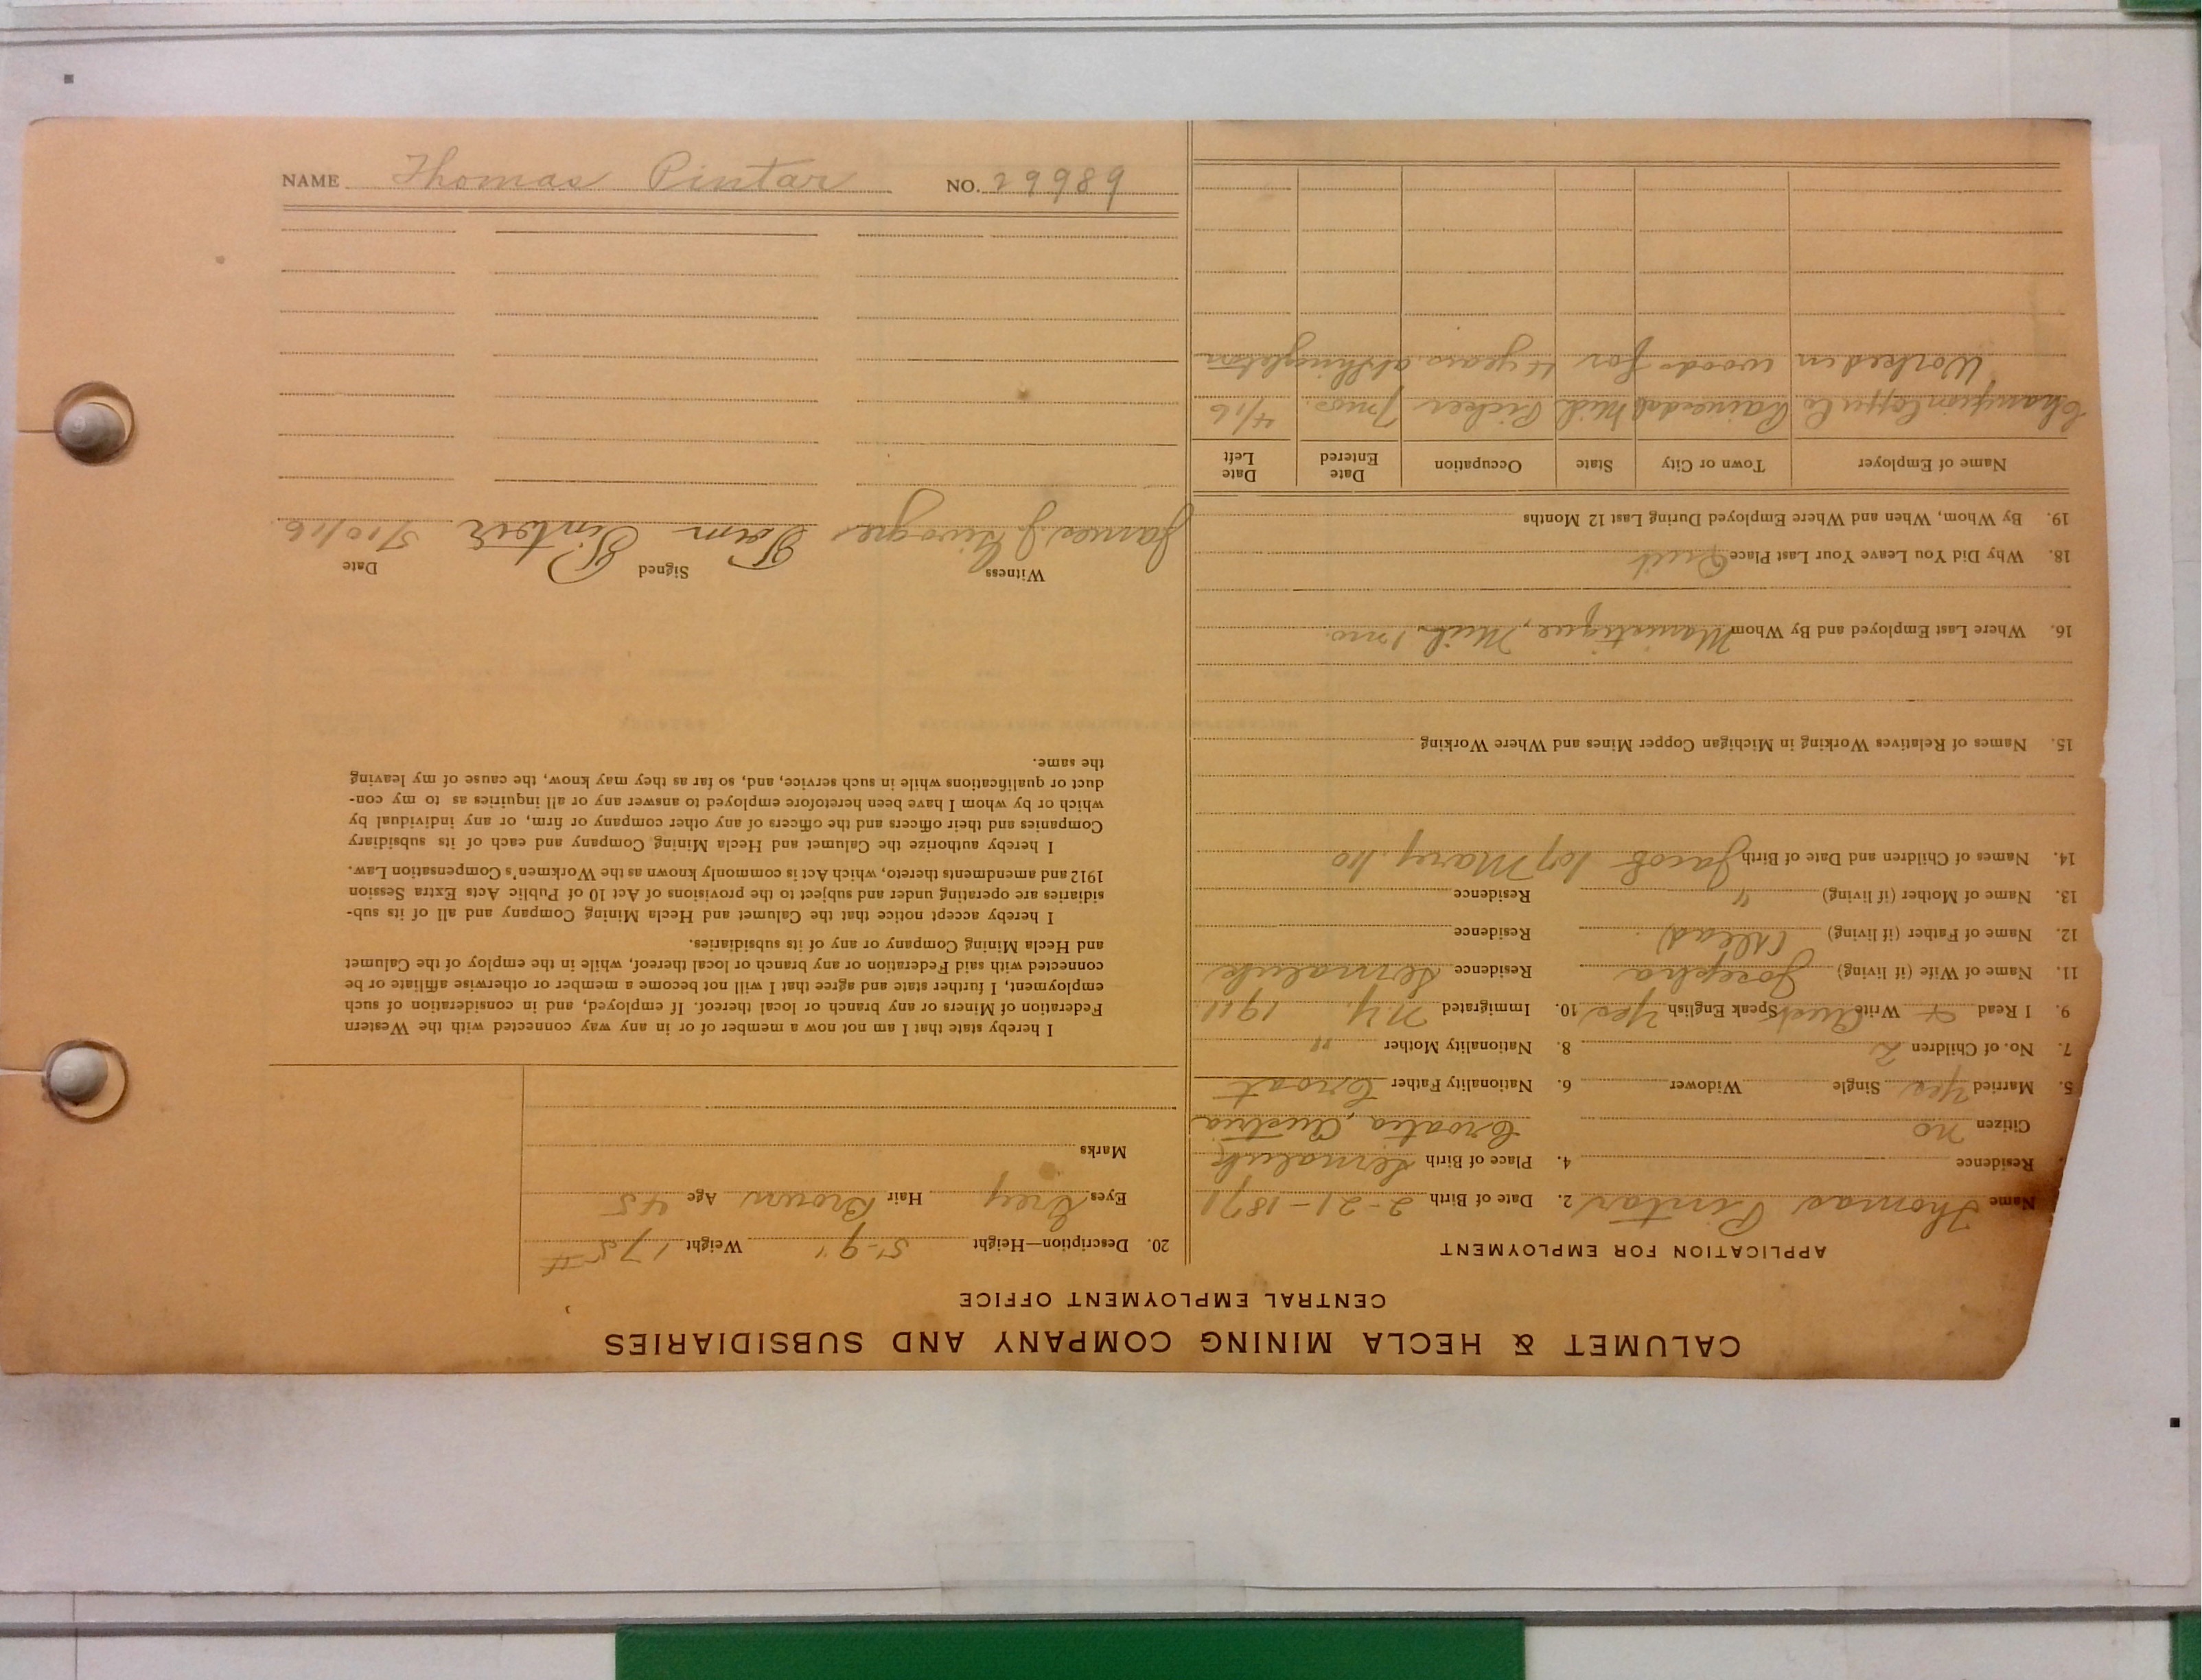 NAME Thomas Pintar NO. 29989
CALUMET & HECLA MINING COMPANY AND SUBSIDIARIES
CENTRAL EMPLOYMENT OFFICE
APPLICATION FOR EMPLOYMENT
Name Thomas Pintar 2. Date of Birth 2-21-1871
Residence 4. Place of Birth
Citizen no Croatia, Austria
5. Married Yes Single Widower 6. Nationality Father Croat
7. No. of Children 2 8. Nationality Mother "
9. I Read + Write Speak English Yes 10. Immigrated N.Y. 1911
11. Name of Wife (if living) Josepha Residence
12. Name of Father (if living) (Dead) Residence
13. Name of Mother (if living) " Residence
14. Names of Children and Date of Birth Jacob 107 Mary. 110
15. Names of Relatives Working in Michigan Copper Mines and Where Working
16. Where Last Employed and By Whom Manistique, Mich. 1 mo.
18. Why Did You Leave Your Last Place Quit
19. By Whom, When and Where Employed During Last 12 Months
Name of Employer Town or City State Occupation Date Entered Date Left
Champion Copper Co Painesdale Mich Picker 7 mos. 4/16
Worked in woods for 4 years at Shingleton
20. Description—Height 5'-9" Weight 175 #
Eyes Grey Hair Brown Age 45
Marks
I hereby state that I am not now a member of or in any way connected with the Western
Federation of Miners or any branch or local thereof. If employed, and in consideration of such
employment, I further state and agree that I will not become a member or otherwise affiliate or be
connected with said Federation or any branch or local thereof, while in the employ of the Calumet
and Hecla Mining Company or any of its subsidiaries.
I hereby accept notice that the Calumet and Hecla Mining Company and all of its sub-
sidiaries are operating under and subject to the provisions of Act 10 of Public Acts Extra Session
1912 and amendments thereto, which Act is commonly known as the Workmen's Compensation Law.
I hereby authorize the Calumet and Hecla Mining Company and each of its subsidiary
Companies and their officers and the officers of any other company or firm, or any individual by
which or by whom I have been heretofore employed to answer any or all inquiries as to my con-
duct or qualifications while in such service, and, so far as they may know, the cause of my leaving
the same.
Witness Signed Date
James J. Tom Pintar 5/10/16